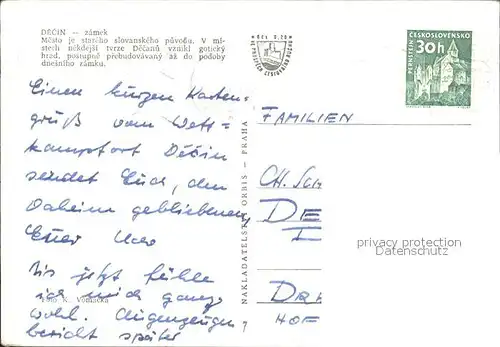 DĚČÍN — zámek
Město je starého slovanského původu. V mí-
stech někdejší tvrze Děčanů vznikl gotický
hrad, postupně přebudovávaný až do podoby
dnešního zámku.
Einen kurzen Karten-
gruß vom Wett-
kampfort Děčín
sendet Euch, den
Daheimgebliebenen,
Euer
Bis jetzt fühle
ich mich ganz
wohl. Augenzeugen-
bericht später
Foto K. Vodnička
NAKLADATELSTVÍ ORBIS - PRAHA
ČESKOSLOVENSKO
30h
PERNŠTEJN
FAMILIEN
CH. SCH
DE
I
DRE
HOF
privacy protection
Datenschutz